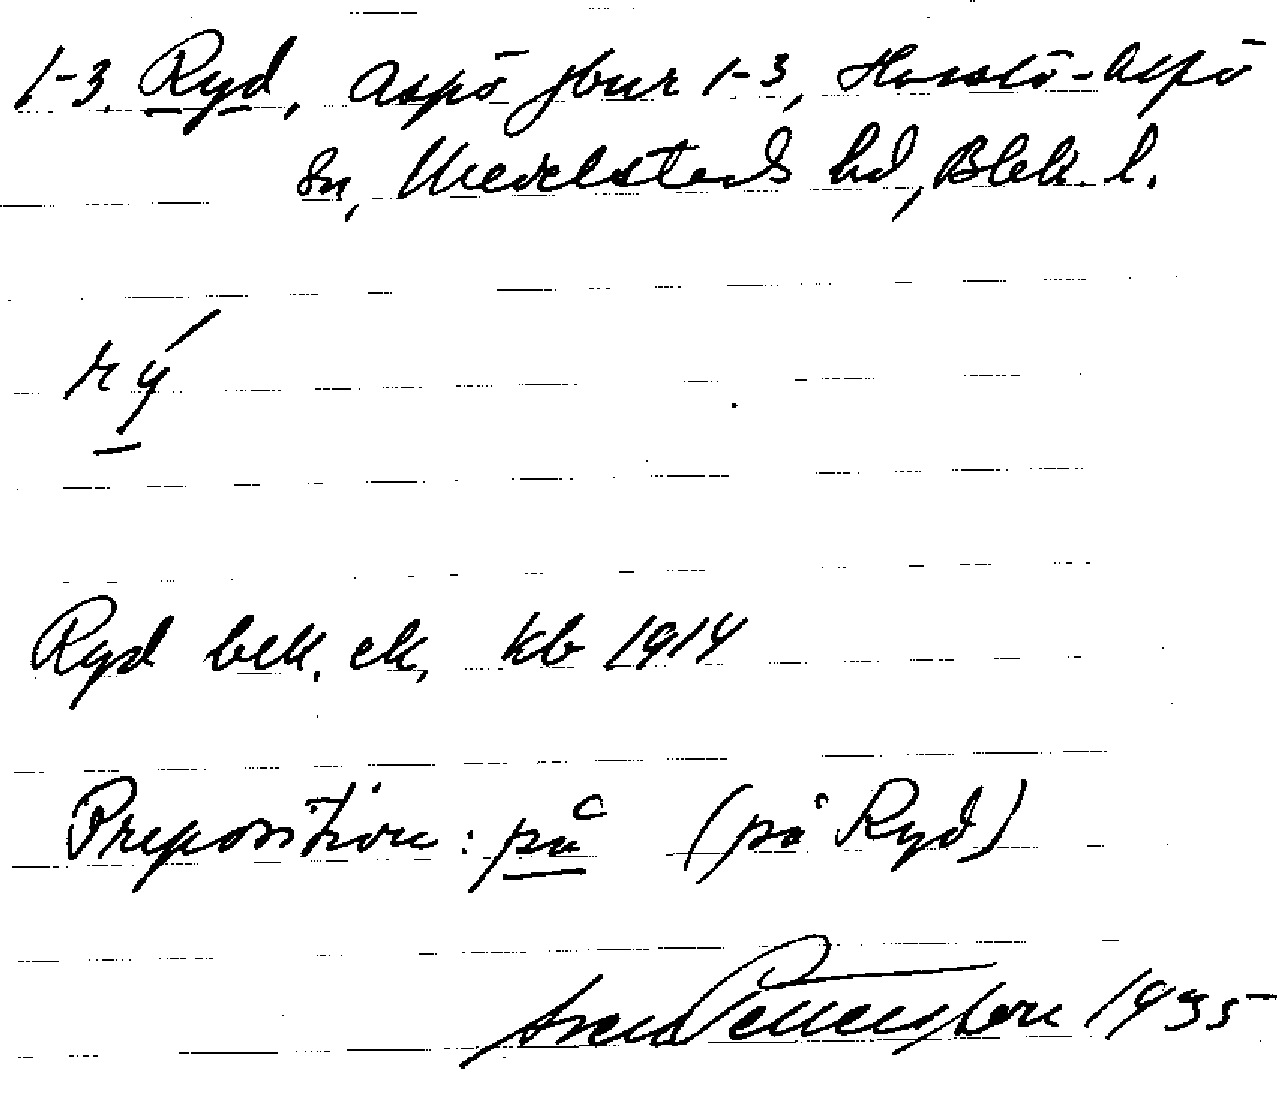 1-3. Ryd, Aspö jbnr 1-3, Hasslö-Aspö
sn, Medelsteds hd, Blek. l.
rý
Ryd bek. ek. kb 1914
Preposition: på (på Ryd)
Sven Benson 1935